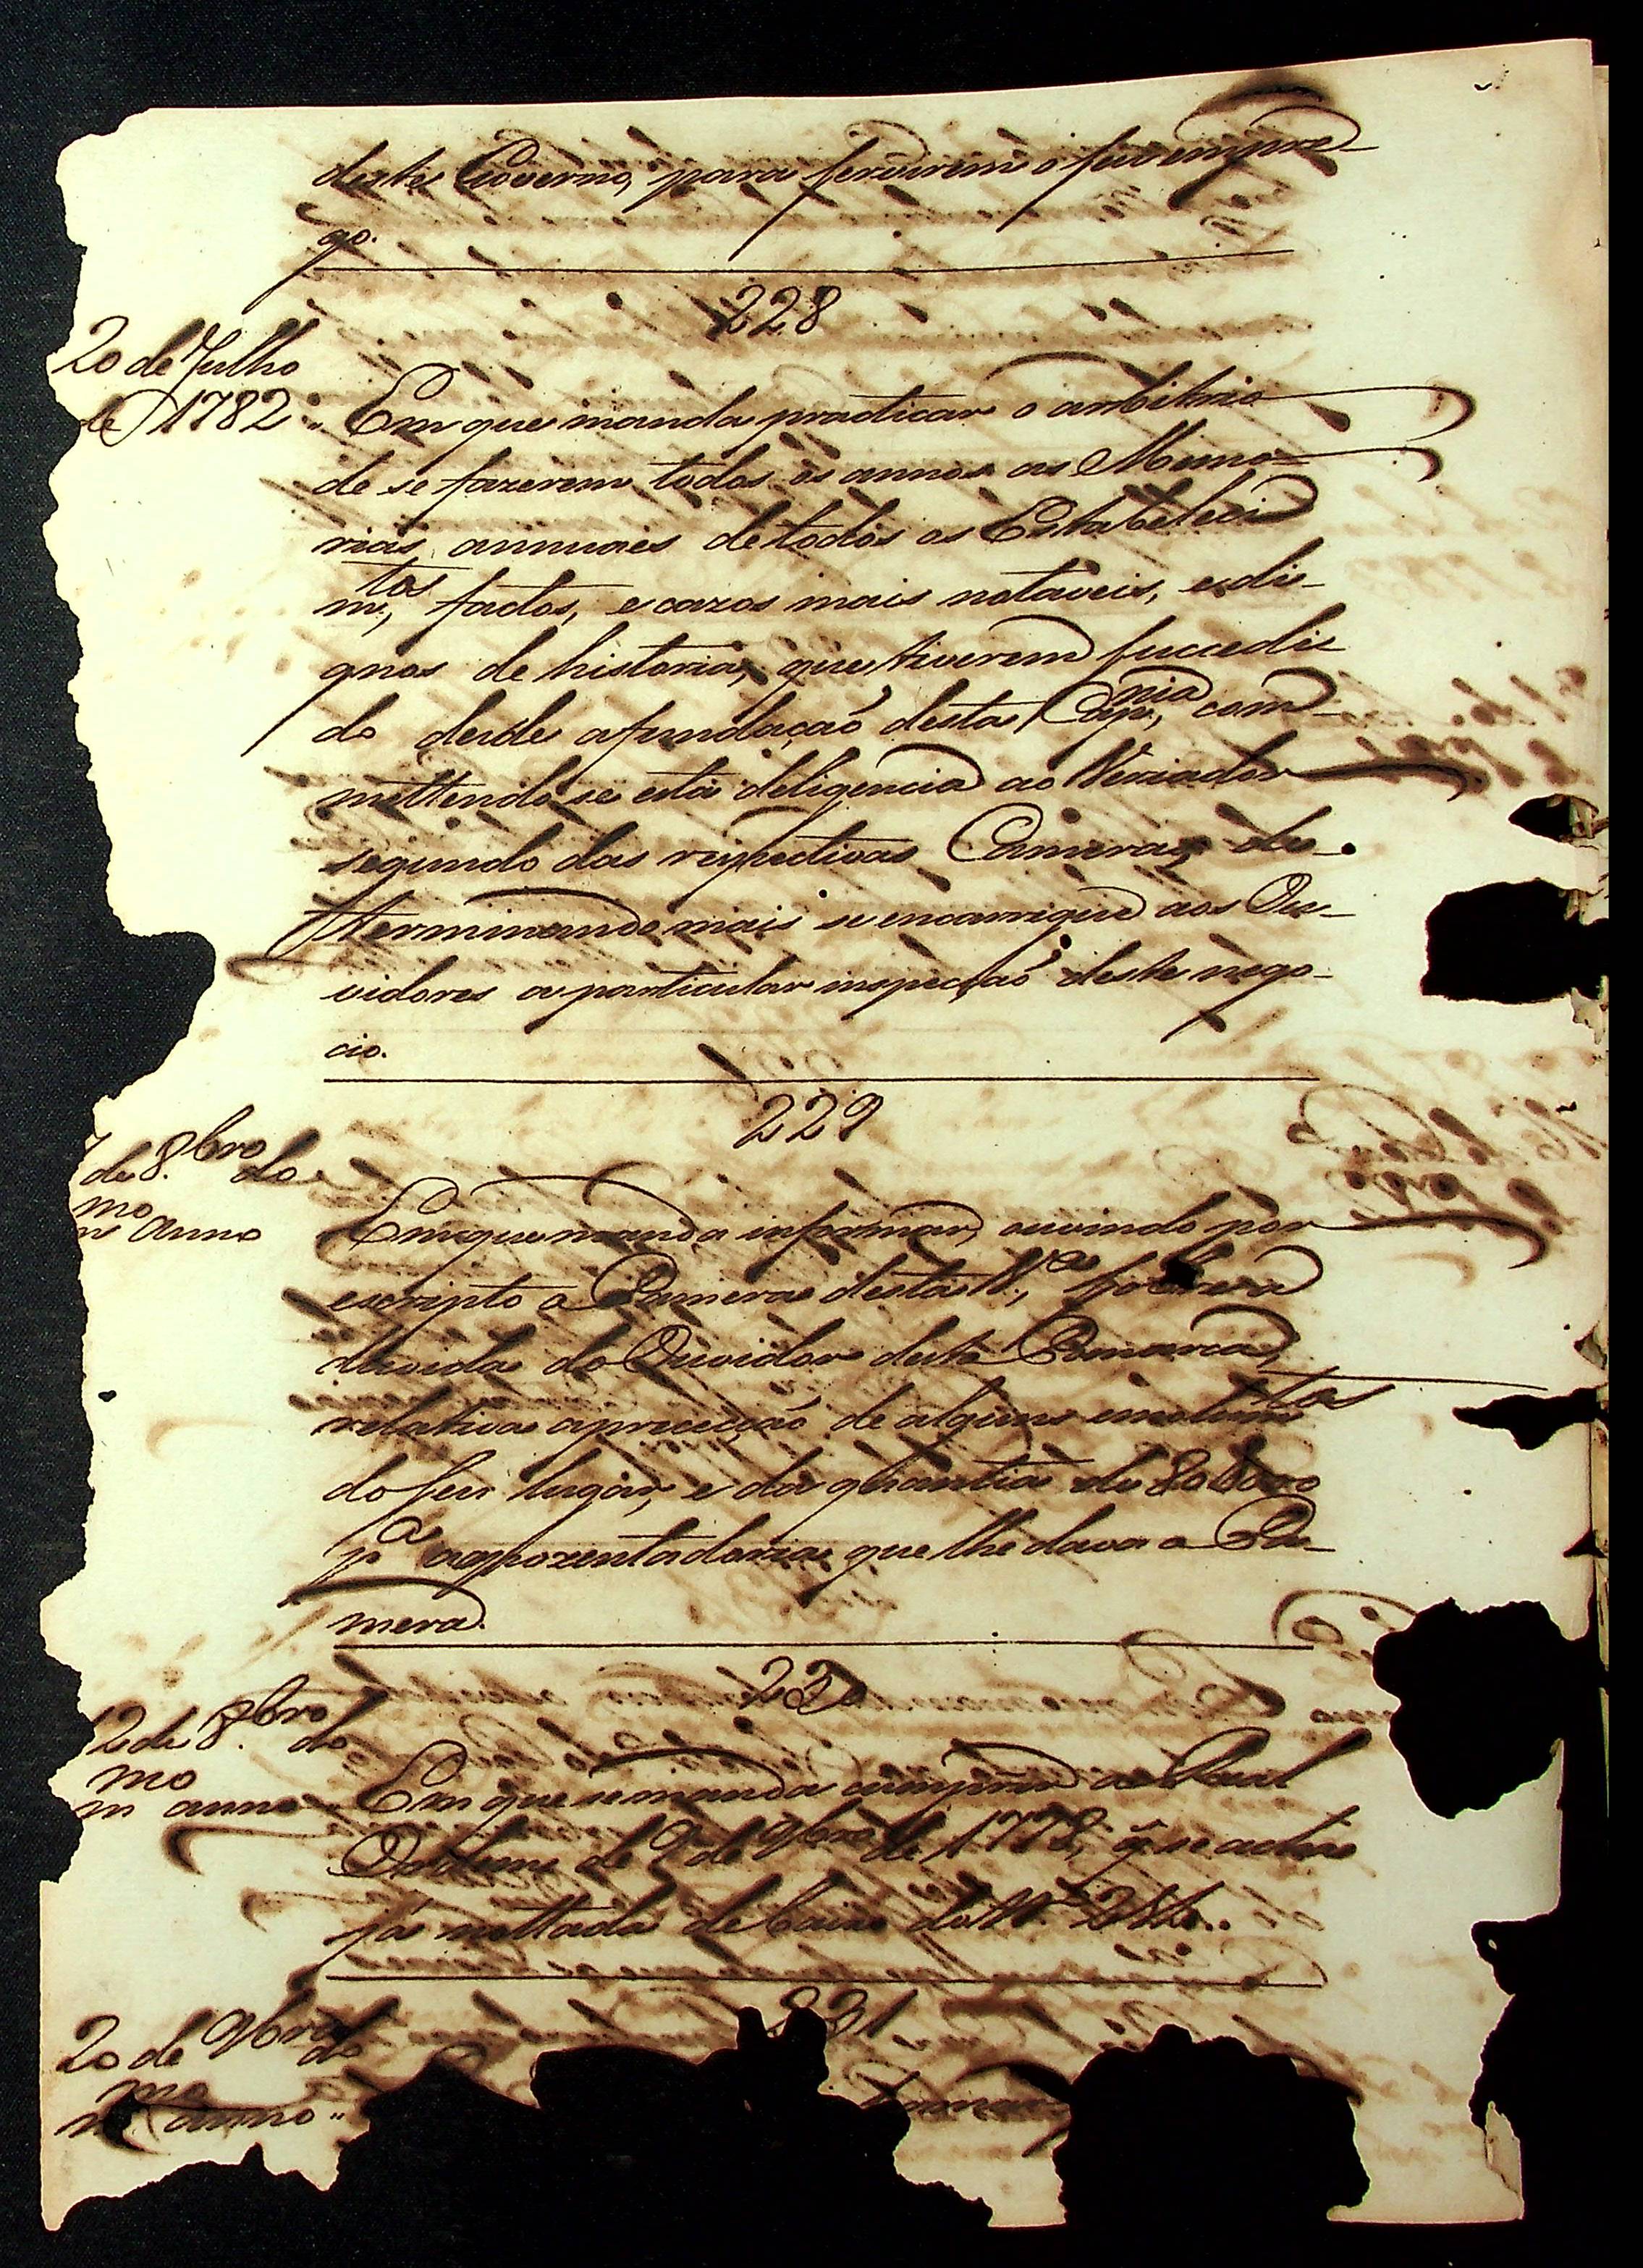 deste Governo, para servirem o seu empre-
go.
228
20 de Julho
de 1782 „ Em que manda practicar o arbitrio
de se fazerem todos os annos as Memo-
rias annuaes de todos os Estabeleci
m.tos, factos, e cazos mais notaveis, e di-
gnos de historia, que tiverem succedi-
do desde a fundaçaõ desta Cap.nia, com-
mettendo se esta deligencia ao Veriador
segundo das respectivas Cameras, de-
terminando mais se encarregue aos Ou-
vidores a particular inspecçaõ deste nego-
cio.
229
de 8.bro do
m.mo anno Em que manda informar, ouvindo por
escripto a Camera desta V.a, sobre a
duvida do Ouvidor desta Comarca,
relativa a precepçaõ de alguns emolum.tos
do seu lugar, e da quantia de 80$000
p.a appozentadoria que lhe dava a Ca-
mera.
230
12 de 8.bro do
m.mo anno Em que se manda cumprir a Real
Ordem de 9 de 9bro de 1773, q̃ se acha
já nottada debaixo do N.o
231
20 de 9bro do
m.mo anno „